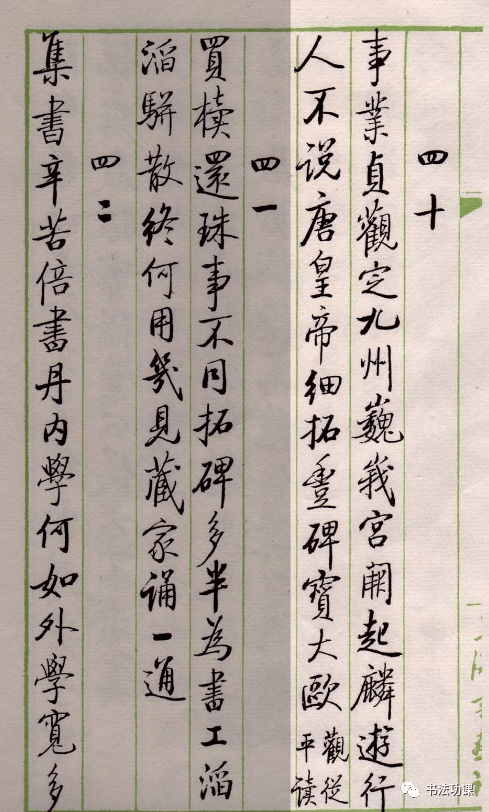 四十
事業貞觀定九州巍峩宮闕起麟遊行
人不说唐皇帝细拓豊碑寶大歐
觀從
平读
四一
買櫝還珠事不同拓碑多半為書工滔
滔駢散終何用幾見藏家誦一通
四二
集書辛苦倍書丹内學何如外學寬多
书法功课